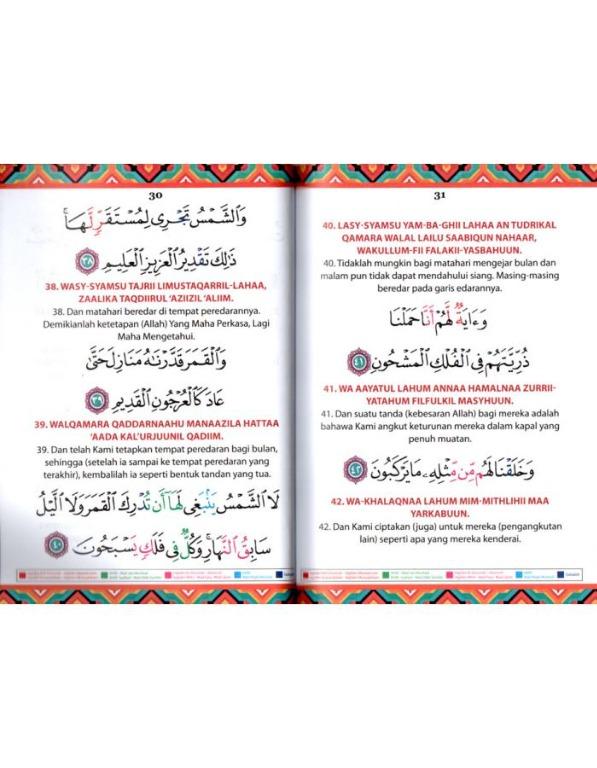 30
وَالشَّمْسُ تَجْرِى لِمُسْتَقَرٍّ لَّهَا ۚ
ذَٰلِكَ تَقْدِيرُ الْعَزِيزِ الْعَلِيمِ ٣٨
38. WASY-SYAMSU TAJRII LIMUSTAQARRIL-LAHAA,
ZAALIKA TAQDIIRUL 'AZIIZIL 'ALIIM.
38. Dan matahari beredar di tempat peredarannya.
Demikianlah ketetapan (Allah) Yang Maha Perkasa, Lagi
Maha Mengetahui.
وَالْقَمَرَ قَدَّرْنَٰهُ مَنَازِلَ حَتَّىٰ
عَادَ كَالْعُرْجُونِ الْقَدِيمِ ٣٩
39. WALQAMARA QADDARNAAHU MANAAZILA HATTAA
'AADA KAL'URJUUNIL QADIIM.
39. Dan telah Kami tetapkan tempat peredaran bagi bulan,
sehingga (setelah ia sampai ke tempat peredaran yang
terakhir), kembalilah ia seperti bentuk tandan yang tua.
لَا الشَّمْسُ يَنۢبَغِى لَهَا أَن تُدْرِكَ الْقَمَرَ وَلَا الَّيْلُ
سَابِقُ النَّهَارِ ۚ وَكُلٌّ فِى فَلَكٍ يَسْبَحُونَ ٤٠
31
40. LASY-SYAMSU YAM-BA-GHII LAHAA AN TUDRIKAL
QAMARA WALAL LAILU SAABIQUN NAHAAR,
WAKULLUM-FII FALAKII-YASBAHUUN.
40. Tidaklah mungkin bagi matahari mengejar bulan dan
malam pun tidak dapat mendahului siang. Masing-masing
beredar pada garis edarannya.
وَءَايَةٌ لَّهُمْ أَنَّا حَمَلْنَا
ذُرِّيَّتَهُمْ فِى الْفُلْكِ الْمَشْحُونِ ٤١
41. WA AAYATUL LAHUM ANNAA HAMALNAA ZURRII-
YATAHUM FILFULKIL MASYHUUN.
41. Dan suatu tanda (kebesaran Allah) bagi mereka adalah
bahawa Kami angkut keturunan mereka dalam kapal yang
penuh muatan.
وَخَلَقْنَا لَهُم مِّن مِّثْلِهِۦ مَا يَرْكَبُونَ ٤٢
42. WA-KHALAQNAA LAHUM MIM-MITHLIHII MAA
YARKABUUN.
42. Dan Kami ciptakan (juga) untuk mereka (pengangkutan
lain) seperti apa yang mereka kenderai.